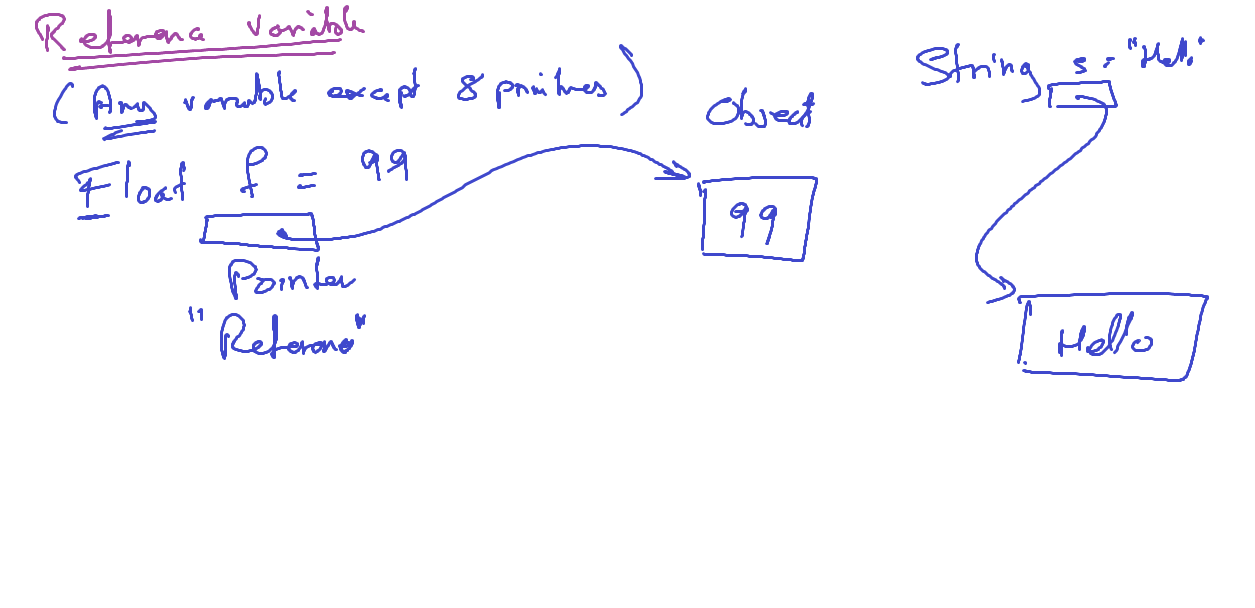 Reference variable
(Any variable except 8 primitives)
Float f = 99
Pointer
"Reference"
Object
99
String s = "Hello"
Hello